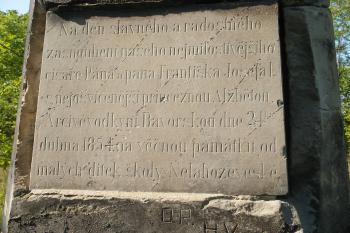 Na den slavného a radostného
zasnoubení našeho nejmilostivějšího
císaře Pána a pana Františka Josefa I.
s nejosvícenejší princeznou Alžbětou
Arcivévodkyní Bavorskou dne 24
dubna 1854 na věčnou památku od
malých dítek školy Nelahozeveské
O.P.
H.V.